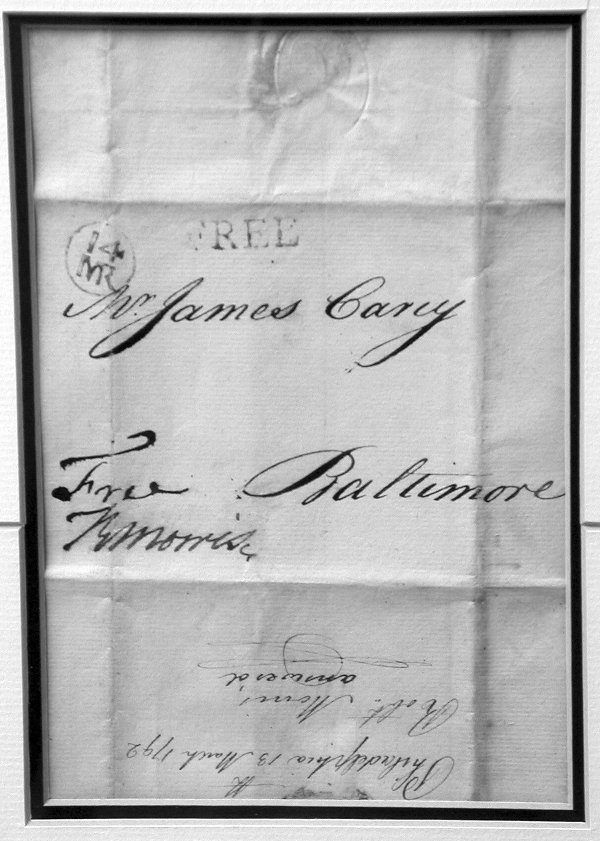 FREE
14
MR
Mr. James Carey
Free Baltimore
R Morris
Philadelphia 13 March 1792
Robt. Morris
answerd